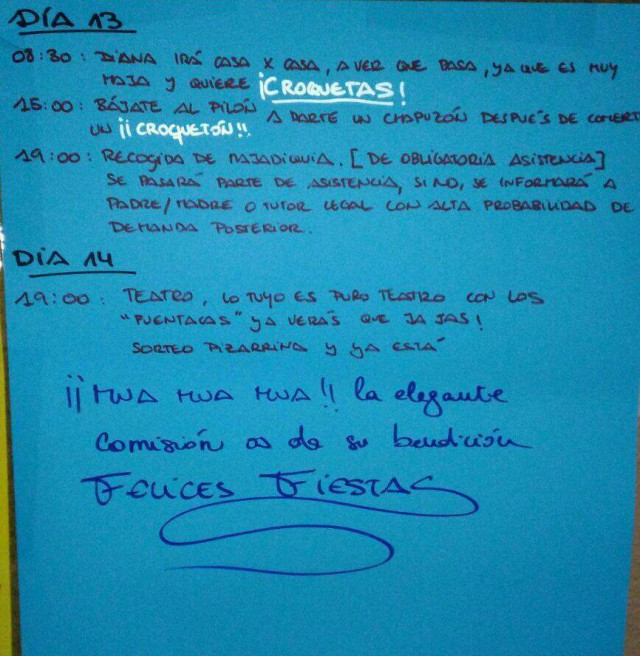 DÍA 13
08:30: DIANA IRÁ CASA X CASA, A VER QUE PASA, YA QUE ES MUY
MAJA Y QUIERE ¡CROQUETAS!
15:00: BÁJATE AL PILÓN A DARTE UN CHAPUZÓN DESPUÉS DE COMERTE
UN ¡¡CROQUETÓN!!
19:00: RECOGIDA DE MAJADIQUIA. [DE OBLIGATORIA ASISTENCIA]
SE PASARÁ PARTE DE ASISTENCIA, SI NO, SE INFORMARÁ A
PADRE/MADRE O TUTOR LEGAL CON ALTA PROBABILIDAD DE
DEMANDA POSTERIOR.
DÍA 14
19:00: TEATRO, LO TUYO ES PURO TEATRO CON LOS
"PUENTACAS" YA VERÁS QUE JA JAS!
SORTEO PIZARRINA Y YA ESTÁ
¡¡MUA MUA MUA!! la elegante
Comisión os da su bendición
FELICES FIESTAS